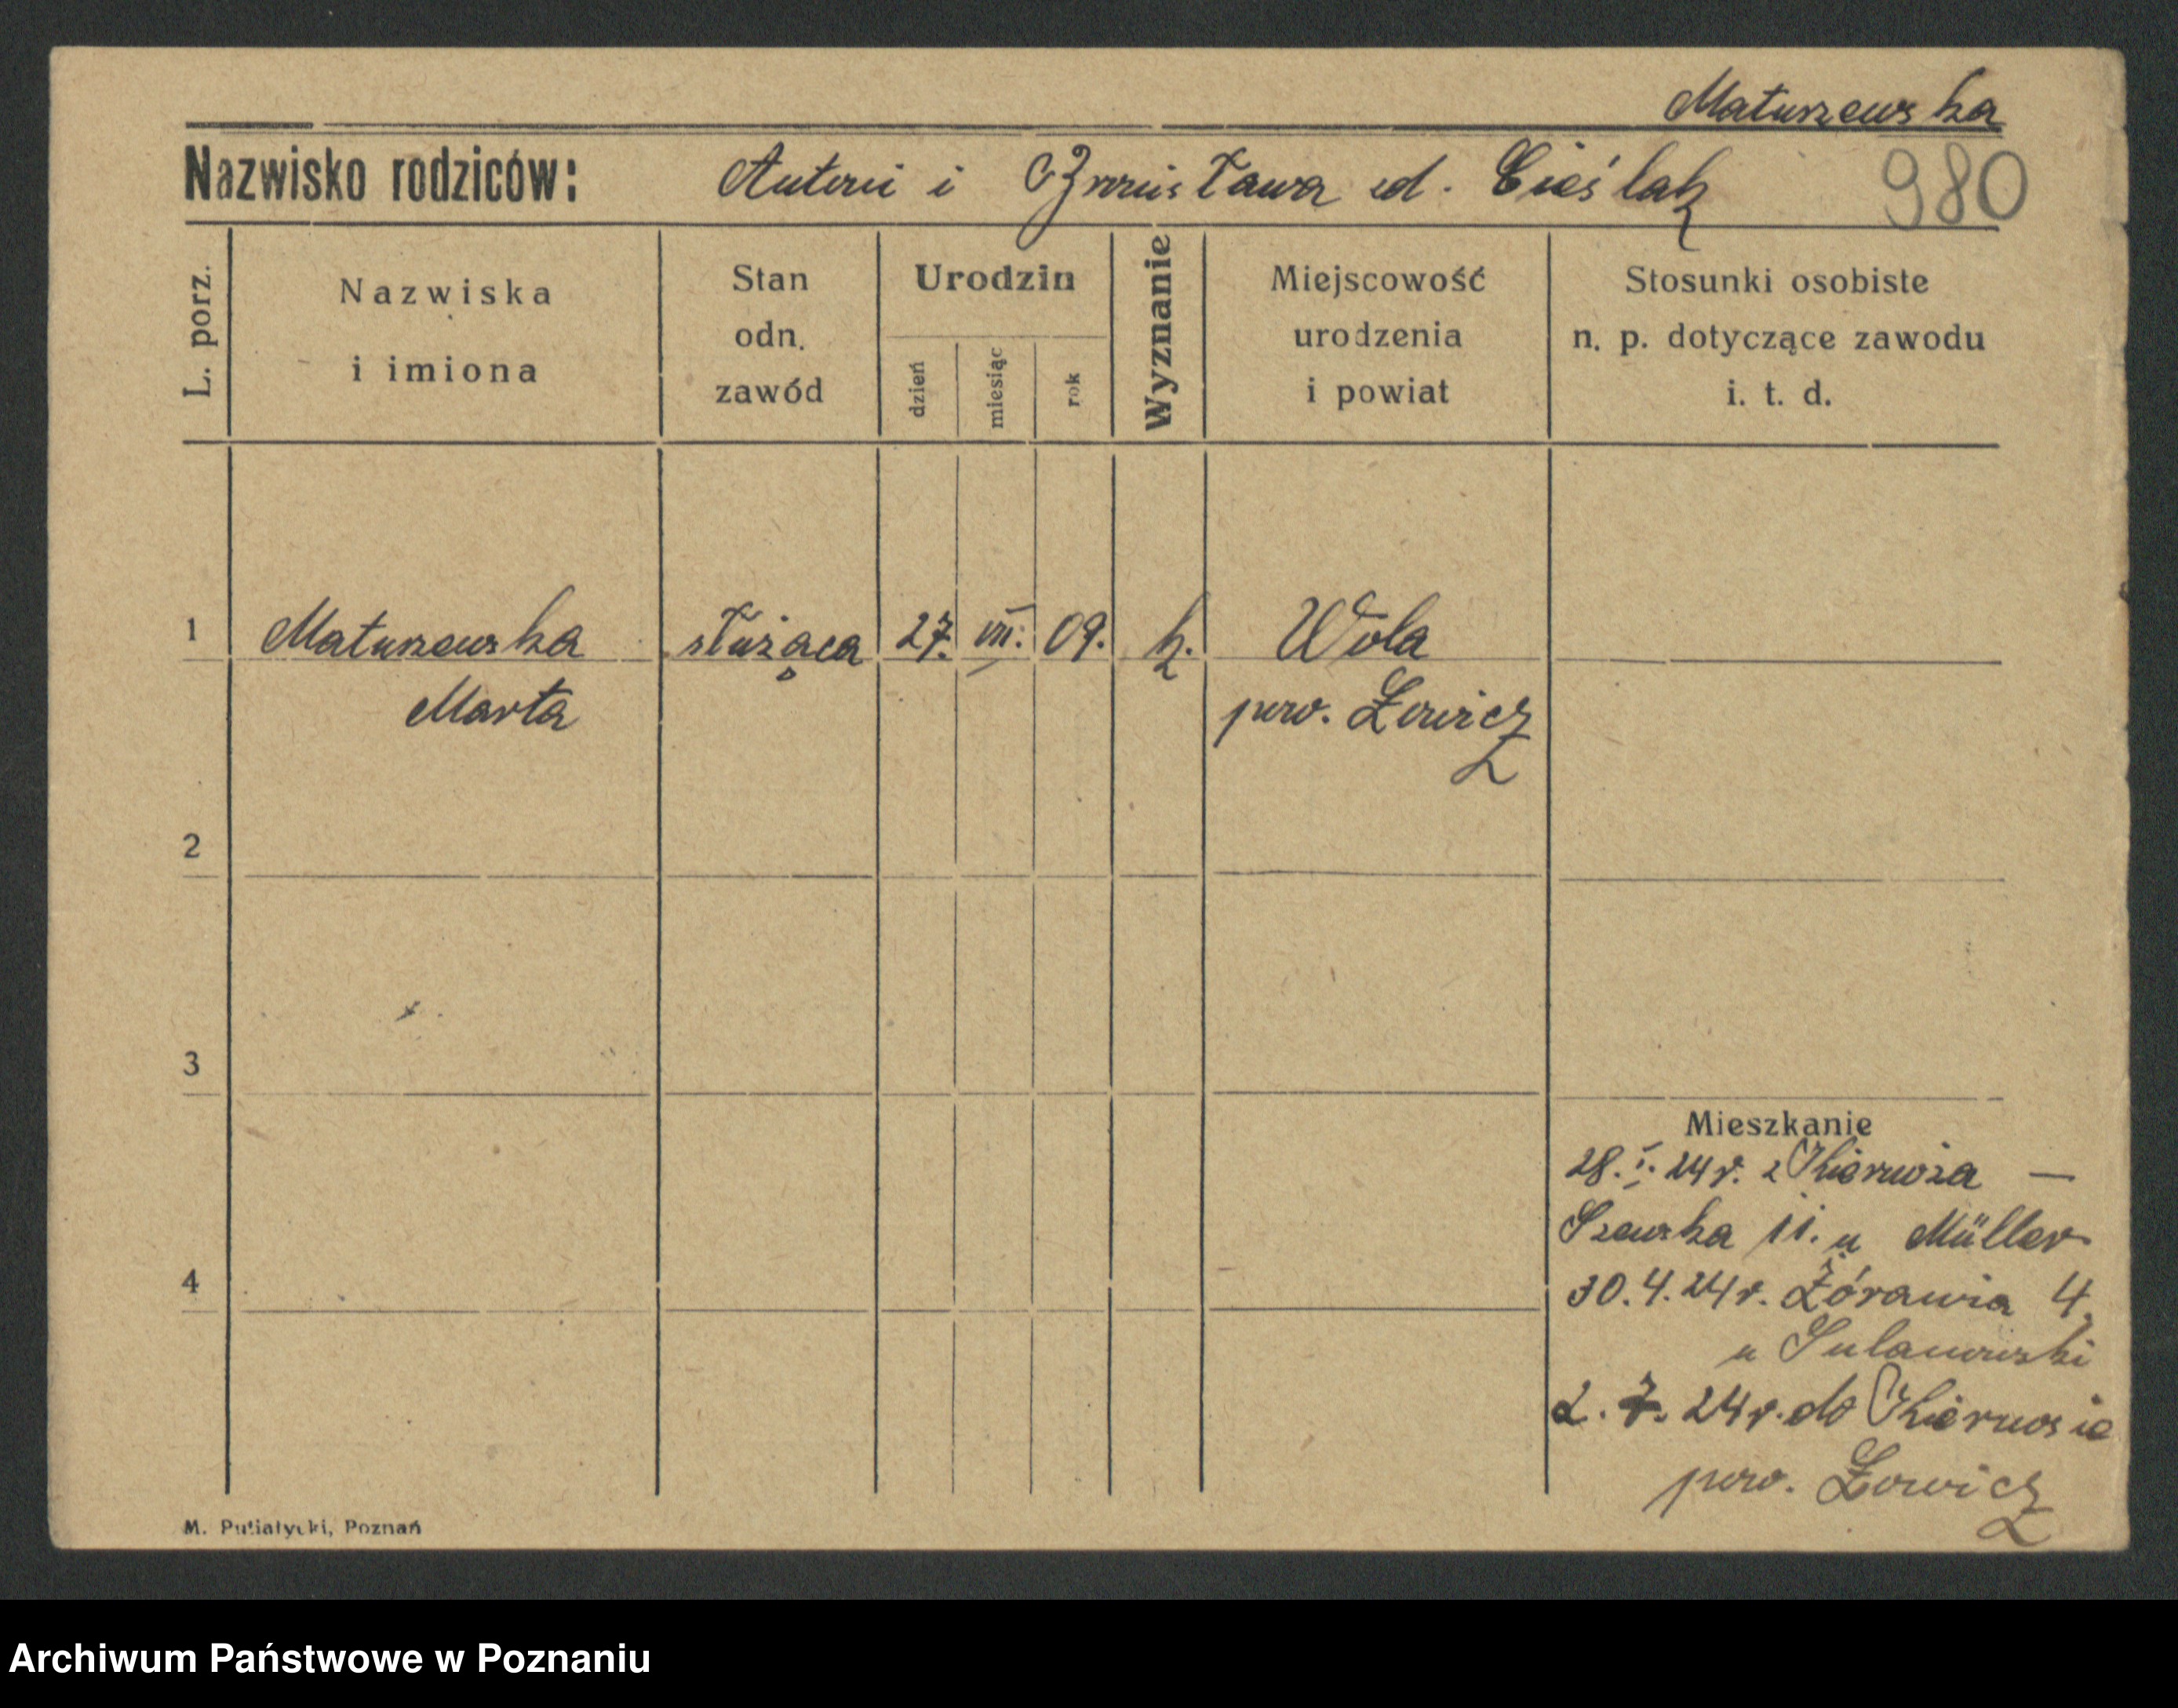 Matuszewska
Nazwisko rodziców: Antoni i Bronisława zd. Cieślak 980
L. porz.
Nazwiska
i imiona
Stan
odn.
zawód
Urodzin
dzień
miesiąc
rok
Wyznanie
Miejscowość
urodzenia
i powiat
Stosunki osobiste
n. p. dotyczące zawodu
i. t. d.
1 Matuszewska służąca 27. VII. 09. k. Wola
Marta pow. Łowicz
2
3
4
Mieszkanie
28. I. 24 r. z Kiernoza —
Szewska 11. u Müller
30. 4. 24 r. Żórawia 4.
u Sulanowski
2. 7. 24 r. do Kiernosie
pow. Łowicz
M. Putiatycki, Poznań
Archiwum Państwowe w Poznaniu